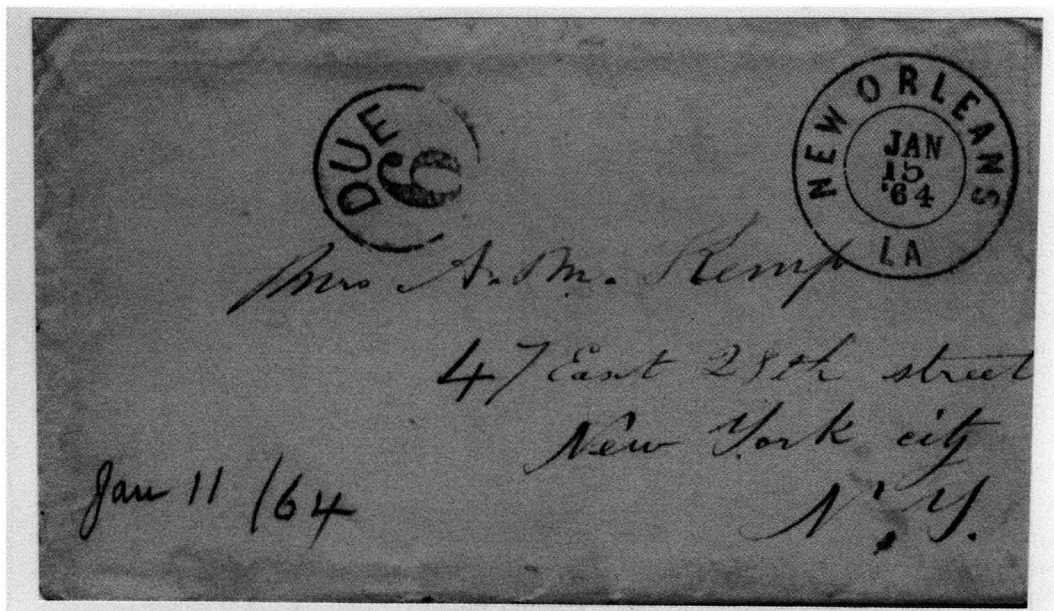 DUE 6
NEW ORLEANS
JAN
15
'64
LA
Mrs A. M. Kemp
47 East 28th street
New York city
N.Y.
Jan 11 /64